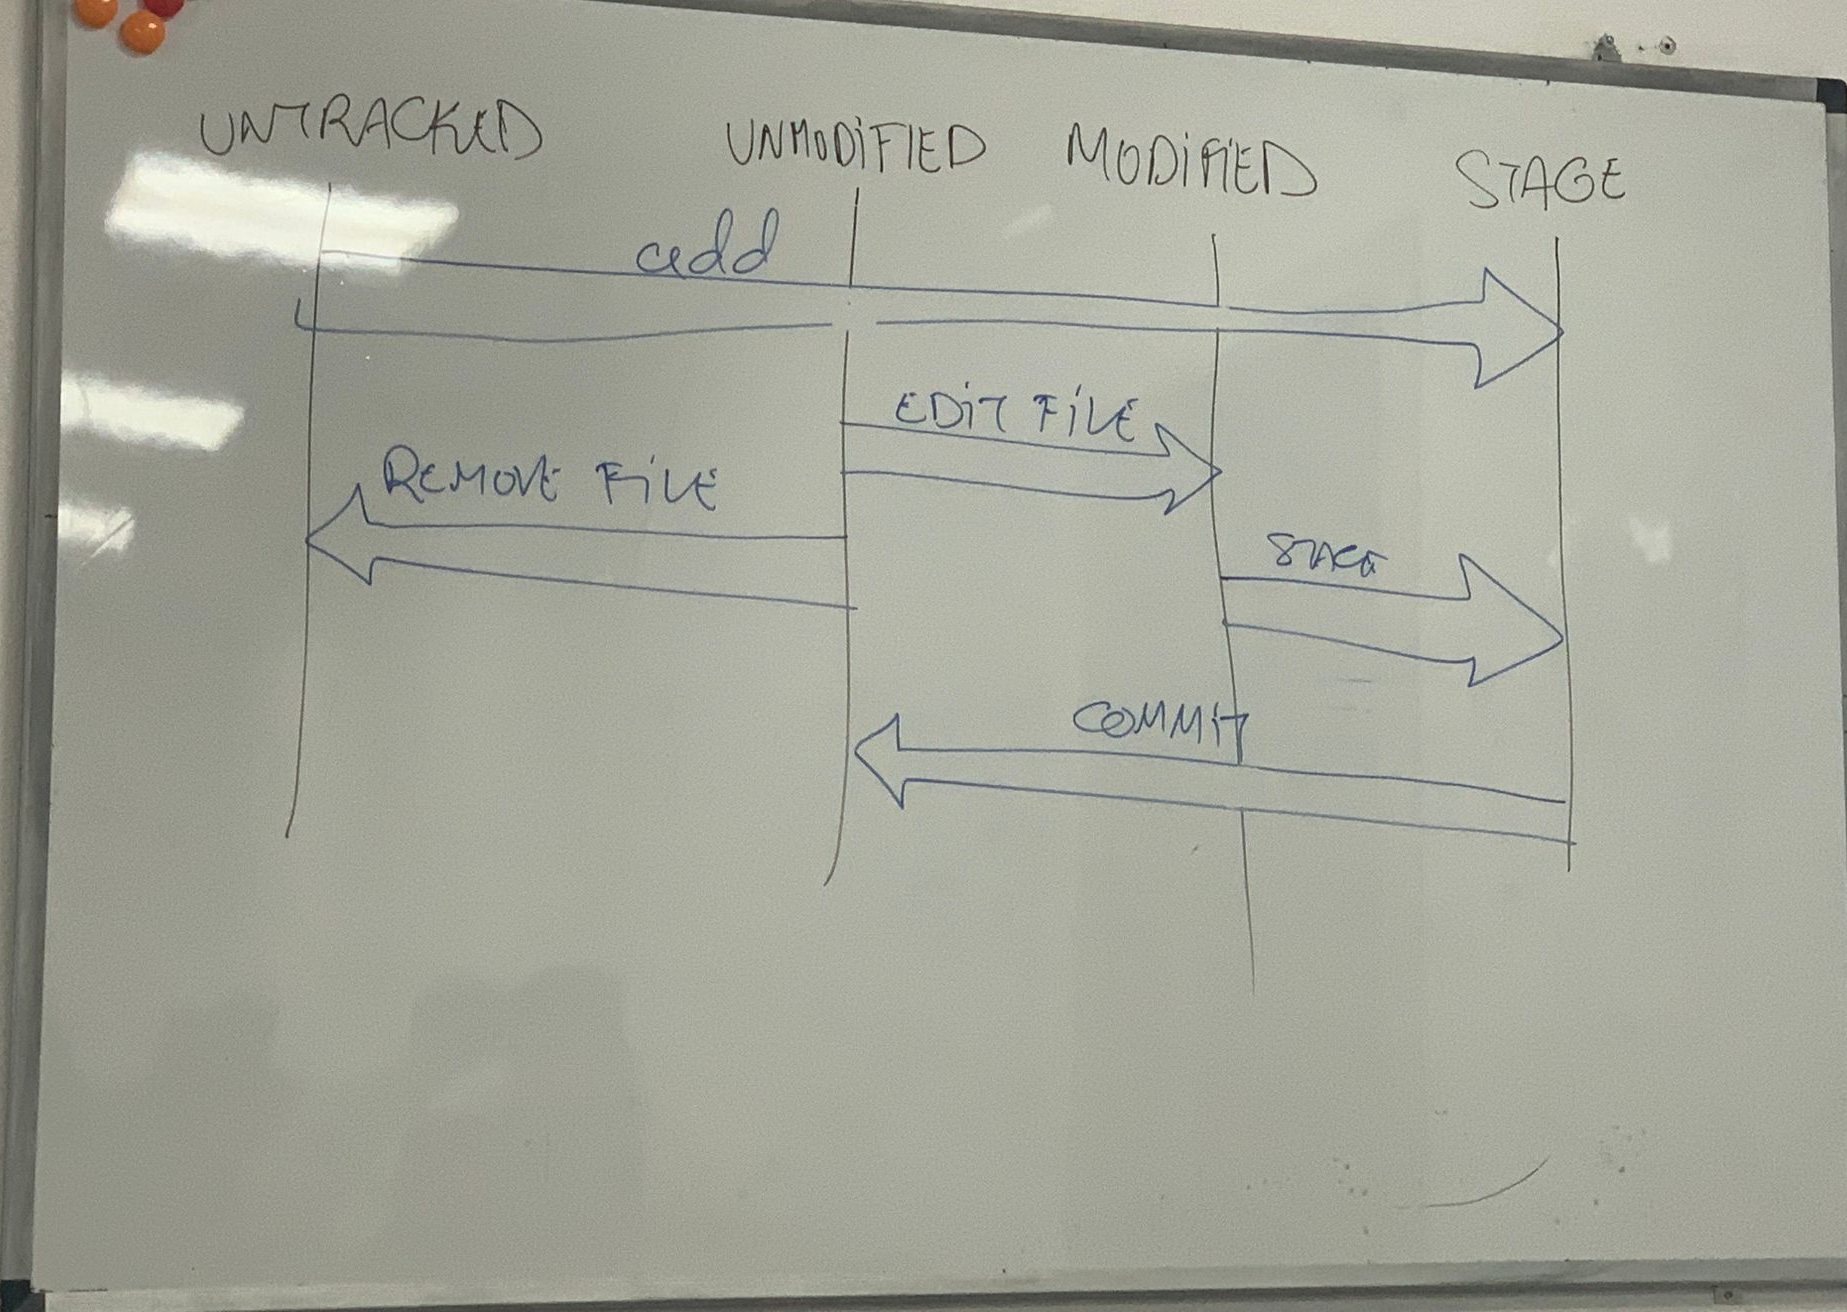 UNTRACKED UNMODIFIED MODIFIED STAGE
add
EDIT FILE
REMOVE FILE
STAGE
COMMIT